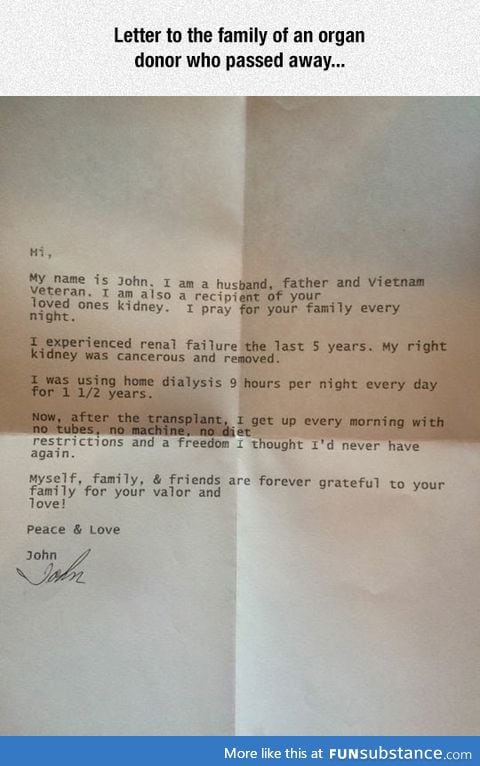 Letter to the family of an organ
donor who passed away...
Hi,
My name is John. I am a husband, father and Vietnam
Veteran. I am also a recipient of your
loved ones kidney.  I pray for your family every
night.
I experienced renal failure the last 5 years. My right
kidney was cancerous and removed.
I was using home dialysis 9 hours per night every day
for 1 1/2 years.
Now, after the transplant, I get up every morning with
no tubes, no machine, no diet
restrictions and a freedom I thought I'd never have
again.
Myself, family, & friends are forever grateful to your
family for your valor and
love!
Peace & Love
John
John
More like this at FUNsubstance.com